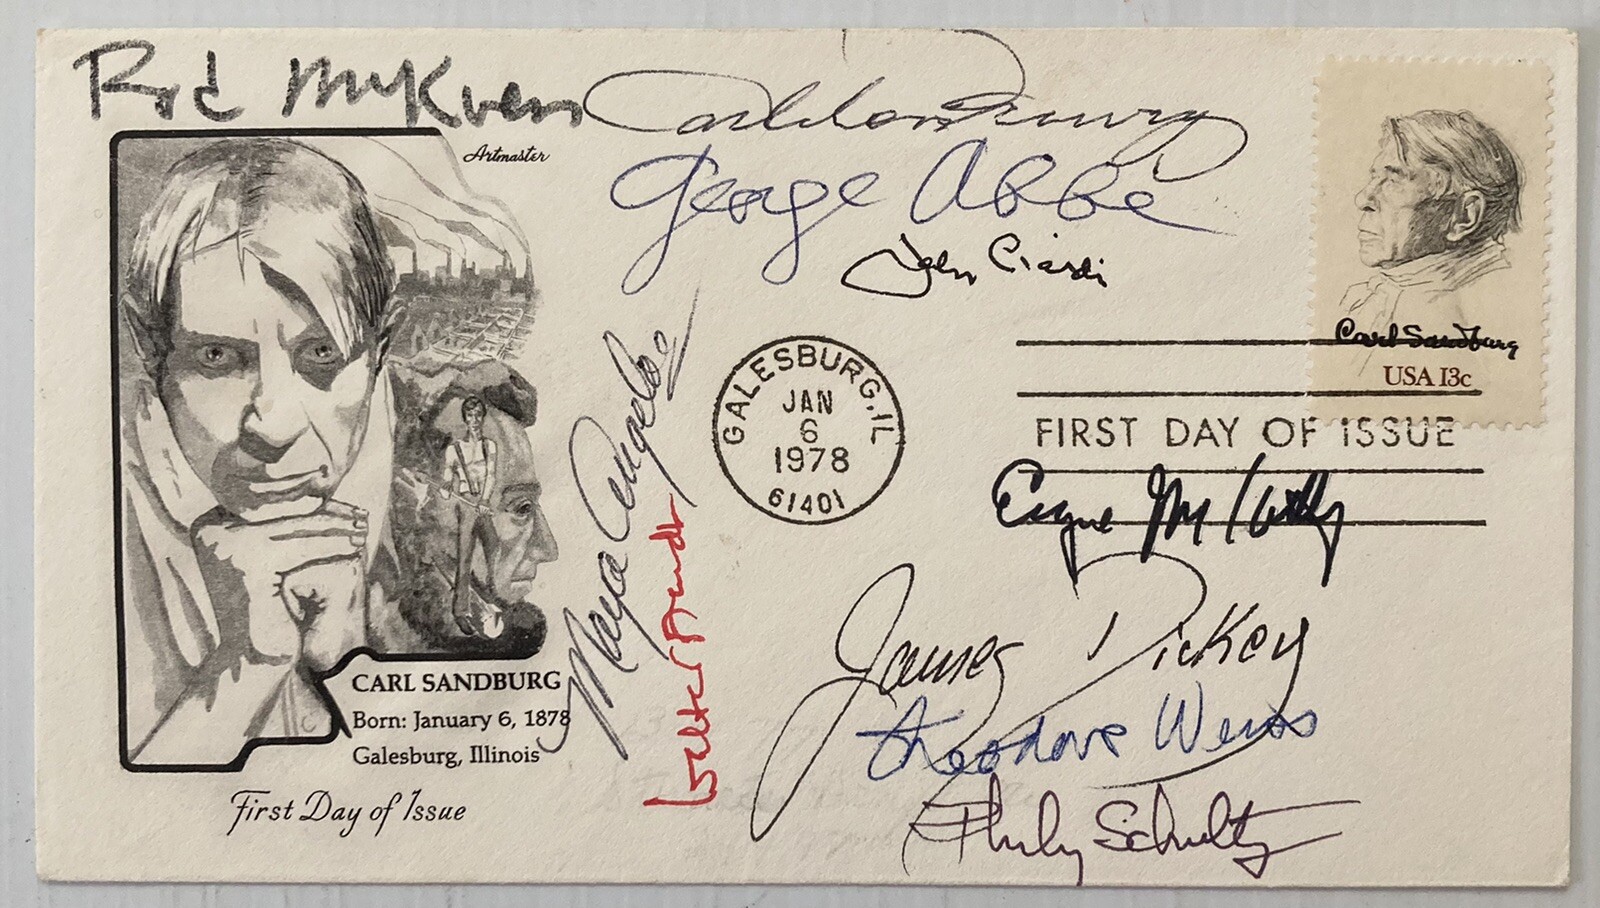 Rod McKuen
Artmaster
George Abbe
John Ciardi
Maya Angelou
GALESBURG, IL
JAN
6
1978
61401
Carl Sandburg
USA 13c
FIRST DAY OF ISSUE
Eugene McCarthy
James Dickey
Theodore Weiss
Philip Schultz
CARL SANDBURG
Born: January 6, 1878
Galesburg, Illinois
First Day of Issue